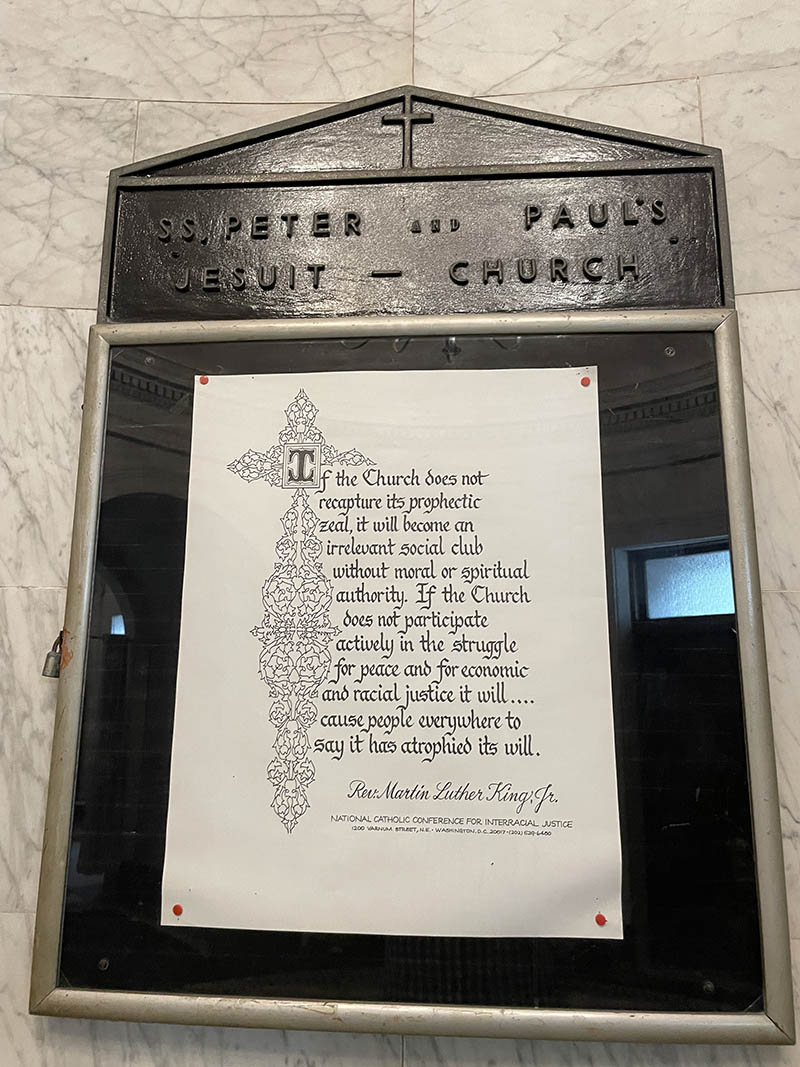 SS. PETER AND PAUL'S
JESUIT — CHURCH
If the Church does not
recapture its prophectic
zeal, it will become an
irrelevant social club
without moral or spiritual
authority. If the Church
does not participate
actively in the struggle
for peace and for economic
and racial justice it will....
cause people everywhere to
say it has atrophied its will.
Rev. Martin Luther King, Jr.
NATIONAL CATHOLIC CONFERENCE FOR INTERRACIAL JUSTICE
1200 VARNUM STREET, N.E. • WASHINGTON, D.C. 20017 • (202) 529-6480